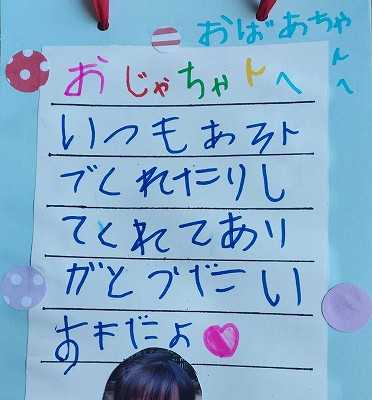 おばあちゃんへ
おじゃちゃんへ
いつもあそん
でくれたりし
てくれてあり
がとうだい
すきだよ